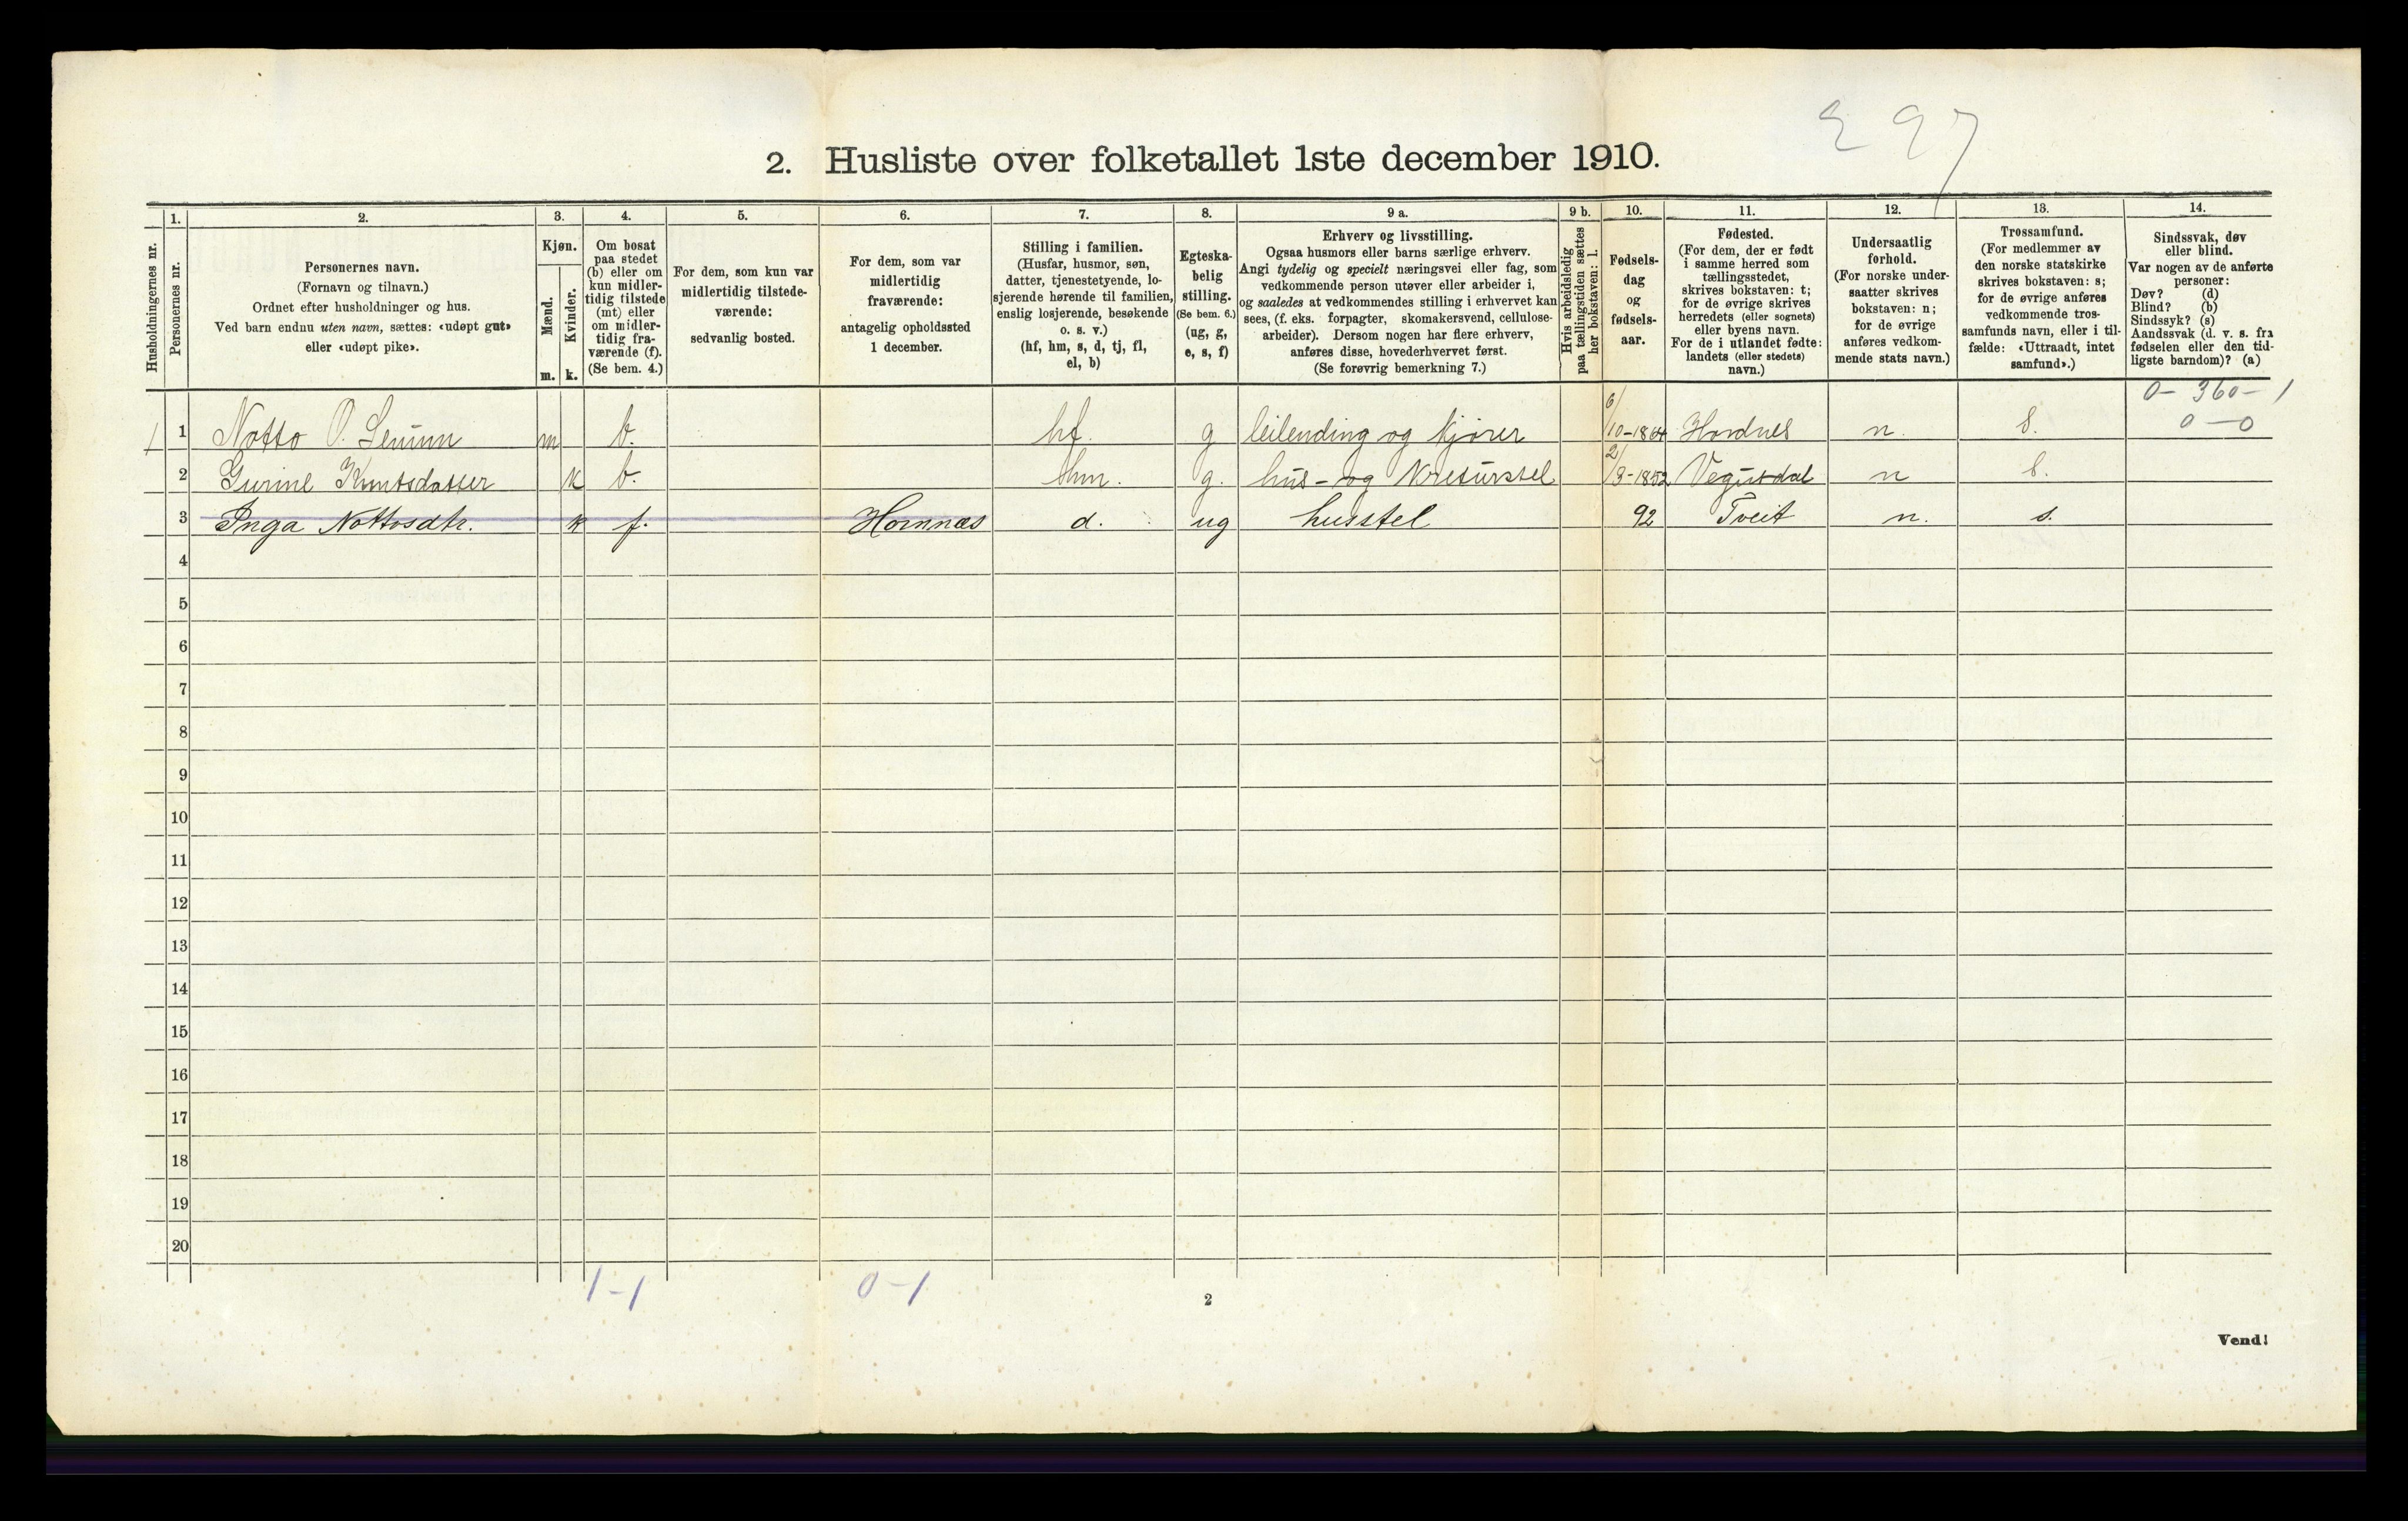 297
2. Husliste over folketallet 1ste december 1910.
1. 2. 3. 4. 5. 6. 7. 8. 9 a. 9 b. 10. 11. 12. 13. 14.
Husholdningernes nr.
Personernes nr.
Personernes navn.
(Fornavn og tilnavn.)
Ordnet efter husholdninger og hus.
Ved barn endnu uten navn, sættes: «udøpt gut»
eller «udøpt pike».
Kjøn.
Mænd.
Kvinder.
m. k.
Om bosat
paa stedet
(b) eller om
kun midler-
tidig tilstede
(mt) eller
om midler-
tidig fra-
værende (f).
(Se bem. 4.)
For dem, som kun var
midlertidig tilstede-
værende:
sedvanlig bosted.
For dem, som var
midlertidig
fraværende:
antagelig opholdssted
1 december.
Stilling i familien.
(Husfar, husmor, søn,
datter, tjenestetyende, lo-
sjerende hørende til familien,
enslig losjerende, besøkende
o. s. v.)
(hf, hm, s, d, tj, fl,
el, b)
Egteska-
belig
stilling.
(Se bem. 6.)
(ug, g,
e, s, f)
Erhverv og livsstilling.
Ogsaa husmors eller barns særlige erhverv.
Angi tydelig og specielt næringsvei eller fag, som
vedkommende person utøver eller arbeider i,
og saaledes at vedkommendes stilling i erhvervet kan
sees, (f. eks. forpagter, skomakersvend, cellulose-
arbeider). Dersom nogen har flere erhverv,
anføres disse, hovederhvervet først.
(Se forøvrig bemerkning 7.)
Hvis arbeidsledig
paa tællingstiden sættes
her bokstaven: l.
Fødsels-
dag
og
fødsels-
aar.
Fødested.
(For dem, der er født
i samme herred som
tællingsstedet,
skrives bokstaven: t;
for de øvrige skrives
herredets (eller sognets)
eller byens navn.
For de i utlandet fødte:
landets (eller stedets)
navn.)
Undersaatlig
forhold.
(For norske under-
saatter skrives
bokstaven: n;
for de øvrige
anføres vedkom-
mende stats navn.)
Trossamfund.
(For medlemmer av
den norske statskirke
skrives bokstaven: s;
for de øvrige anføres
vedkommende tros-
samfunds navn, eller i til-
fælde: «Uttraadt, intet
samfund».)
Sindssvak, døv
eller blind.
Var nogen av de anførte
personer:
Døv? (d)
Blind? (b)
Sindssyk? (s)
Aandssvak (d. v. s. fra
fødselen eller den tid-
ligste barndom)? (a)
0-360-1
0-0
1 1 Notto O. Senum m b. hf. g leilending og kjører 6/10-1864 Hordnes n. s.
2 Gurine Knutsdatter k b. hm. g. hus- og Kreturstel 2/3-1852 Vegusdal n s.
3 Inga Nottosdtr. k f. Hornnæs d. ug husstel 92 Tveit n. s.
4
5
6
7
8
9
10
11
12
13
14
15
16
17
18
19
20
1-1 0-1
2
Vend!